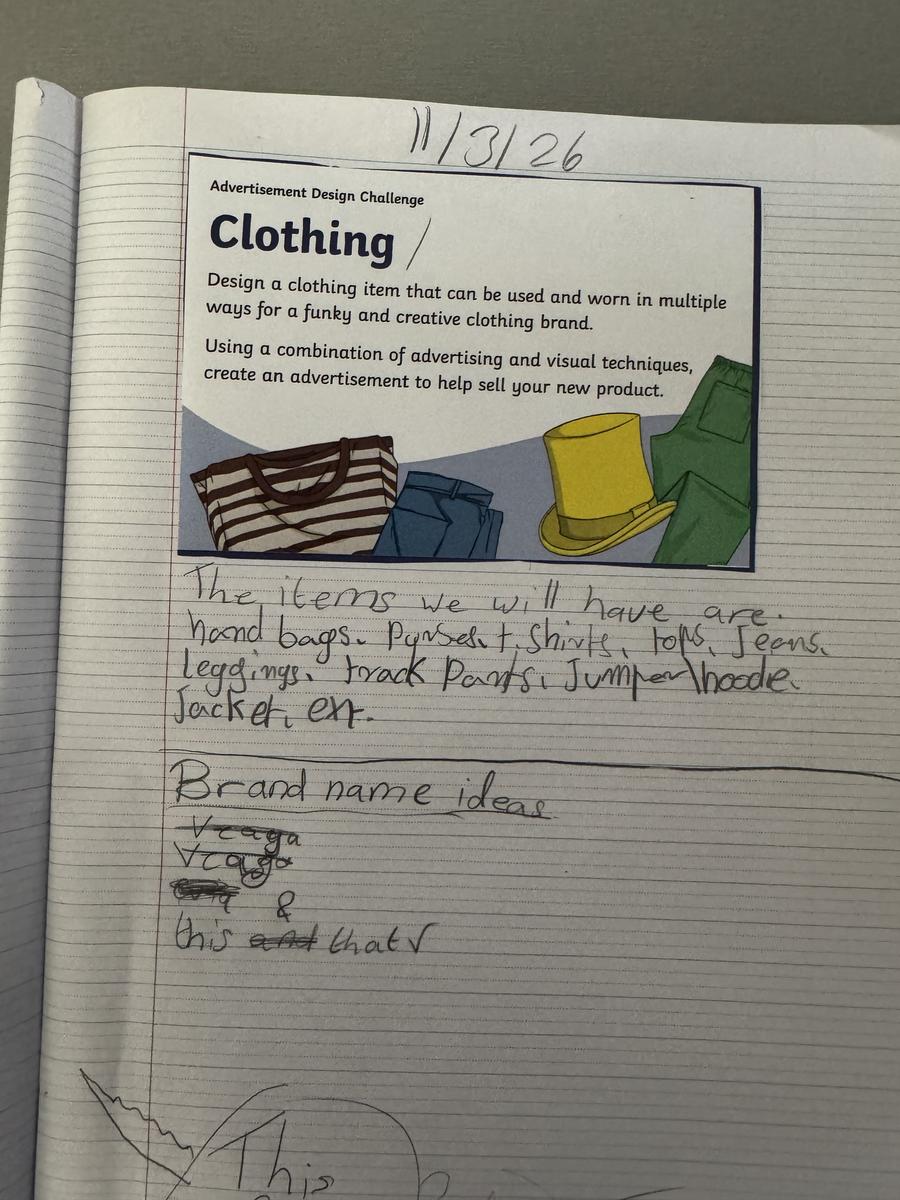 11/3/26
Advertisement Design Challenge
Clothing /
Design a clothing item that can be used and worn in multiple
ways for a funky and creative clothing brand.
Using a combination of advertising and visual techniques,
create an advertisement to help sell your new product.
The items we will have are.
hand bags. Purses. t. Shirts. tops. Jeans.
leggings. track Pants. Jumper\hoodie.
Jacket. ext.
Brand name ideas
Vcaga
Vcaga
&
this and that √
This